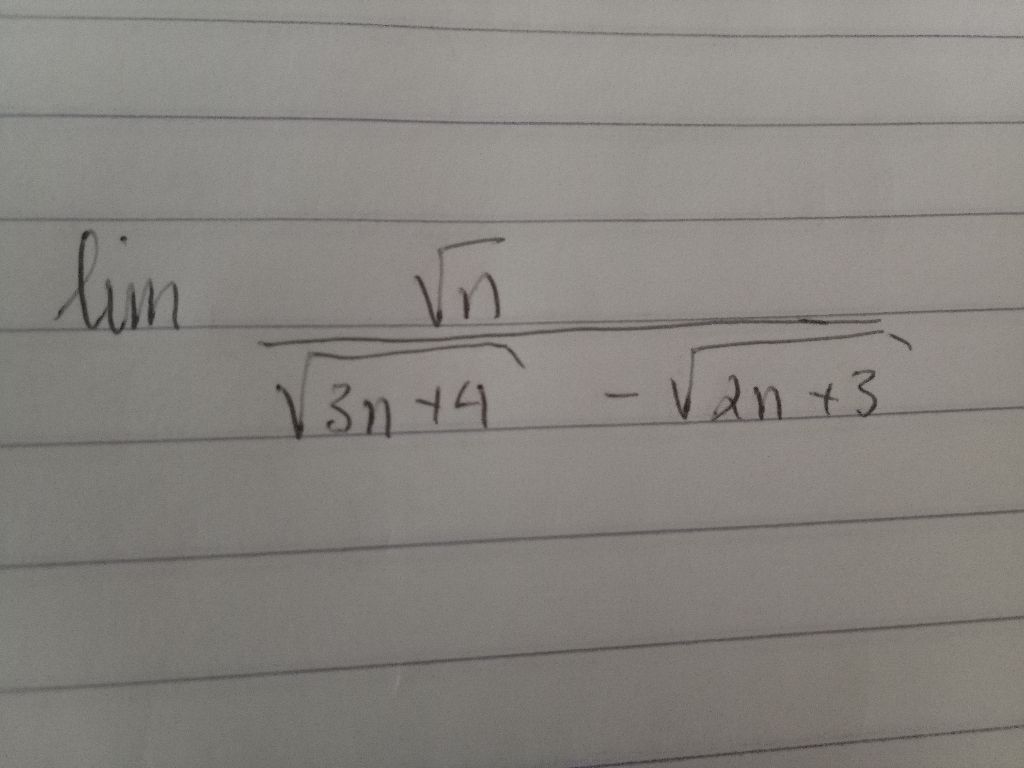 lim √n
√3n+4 - √2n+3